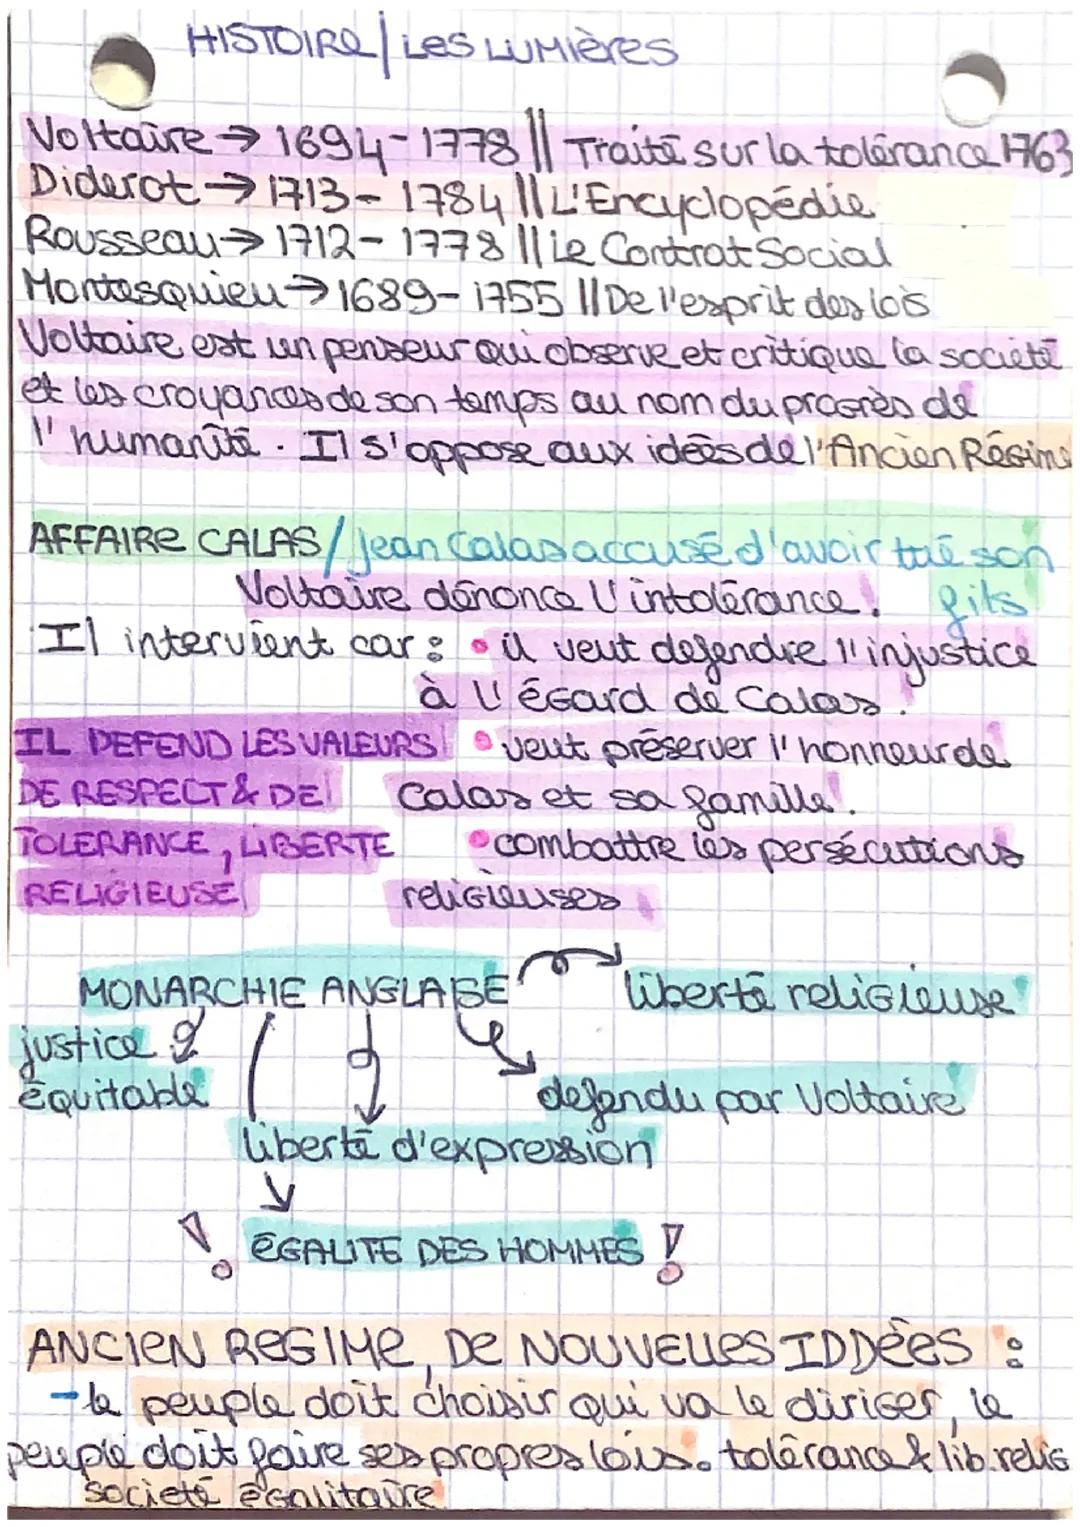 HISTOIRE/LES LUMIÈRES
Voltaire → 1694-1778 || Traité sur la tolérance 1763
Diderot → 1713-1784 || L'Encyclopédie
Rousseau → 1712-1778 || Le Contrat Social
Montesquieu → 1689-1755 || De l'esprit des lois
Voltaire est un penseur qui observe et critique la société
et les croyances de son temps au nom du progrès de
l'humanité. Il s'oppose aux idées de l'Ancien Régime
AFFAIRE CALAS/Jean Calas accusé d'avoir tué son
fils
Voltaire dénonce l'intolérance.
Il intervient car : • il veut defendre l'injustice
à l'égard de Calas.
• veut préserver l'honneur de
Calas et sa famille.
• combattre les persécutions
religieuses
IL DEFEND LES VALEURS
DE RESPECT & DE
TOLERANCE, LIBERTE
RELIGIEUSE
MONARCHIE ANGLAISE
liberté religieuse
justice
équitable
defendu par Voltaire
liberté d'expression
! ÉGALITE DES HOMMES !
ANCIEN REGIME, DE NOUVELLES IDDÉES :
- le peuple doit choisir qui va le diriger, le
peuple doit faire ses propres lois. tolérance & lib. relig
societé égalitaire